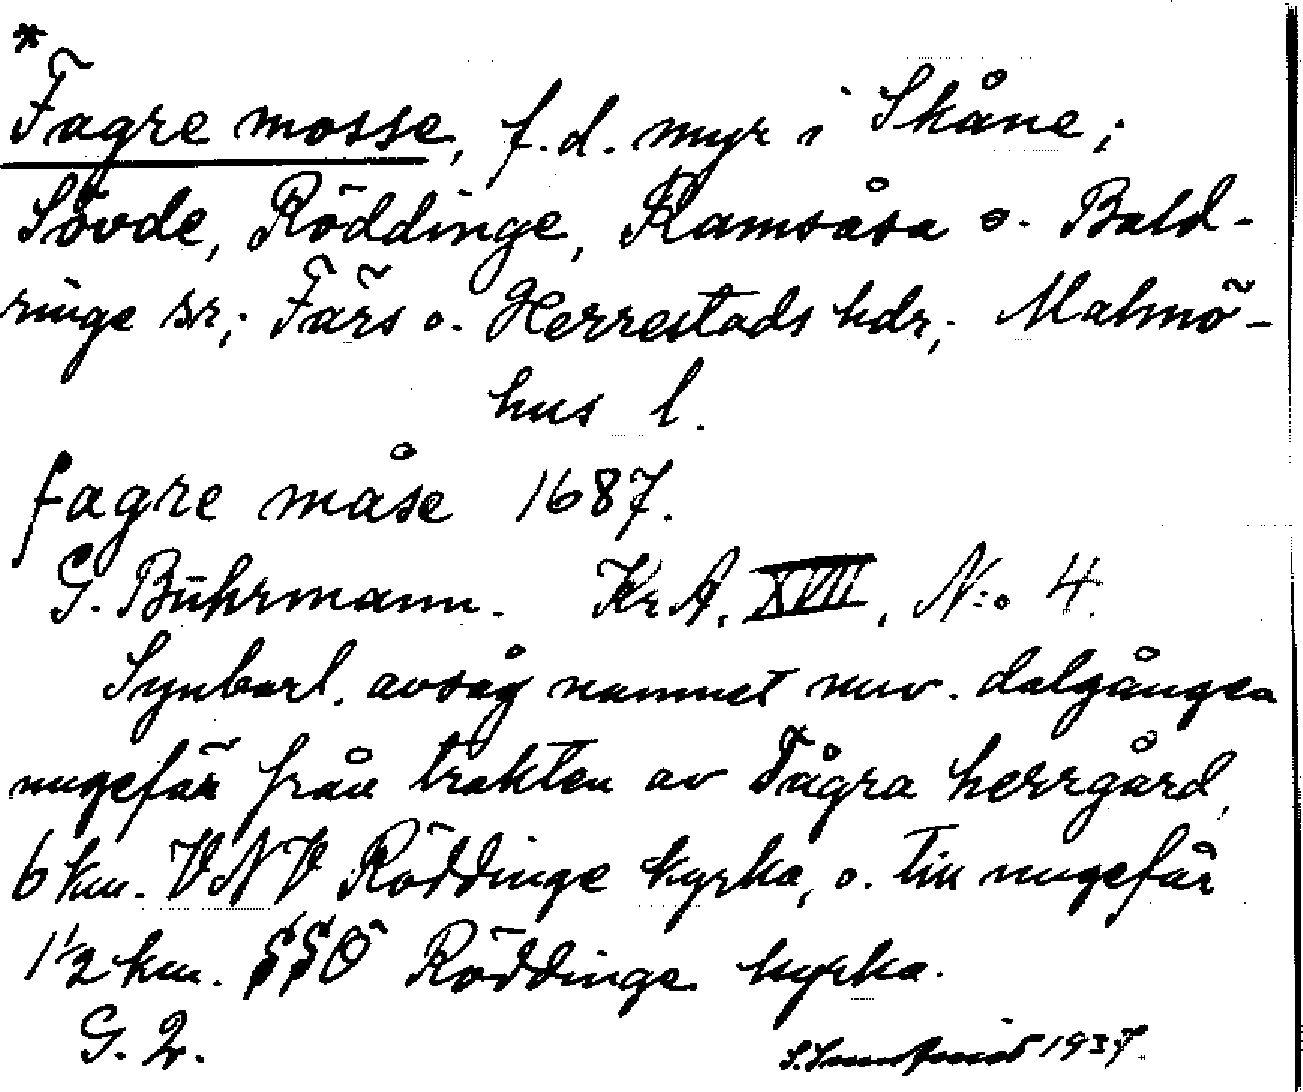 *
Fagre mosse, f.d. myr i Skåne;
Sövde, Röddinge, Ramsåsa o. Bald-
ringe snr; Färs o. Herrestads hdr; Malmö-
hus l.
fagre måse 1687.
G. Buhrmann. KrA. XVII, N:o 4.
Synbarl. avsåg namnet nuv. dalgången
ungefär från trakten av Tågra herrgård,
6 km. VNV Röddinge kyrka, o. till ungefär
1½ km. SSO Röddinge kyrka.
G. 2.
1937.